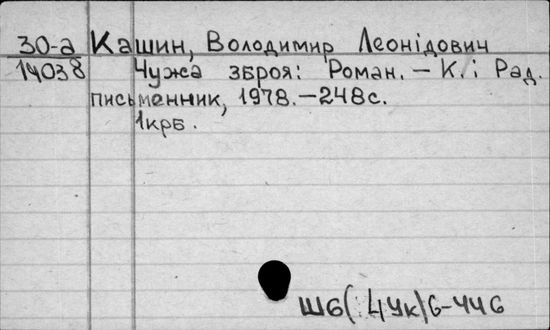 30-а Кашин, Володимир Леонідович
14038 Чужа зброя: Роман. – К.: Рад.
письменник, 1978. – 248 с.
1крб.
Ш6(4Ук)6-446